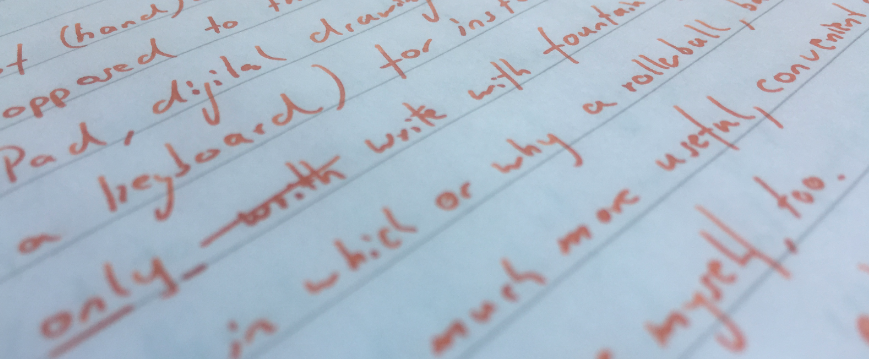 of (hand)
opposed to
Pad, digital drawing
a keyboard) for
only write with fountain
in which or why a rollerball,
much more useful, convenient
myself, too.